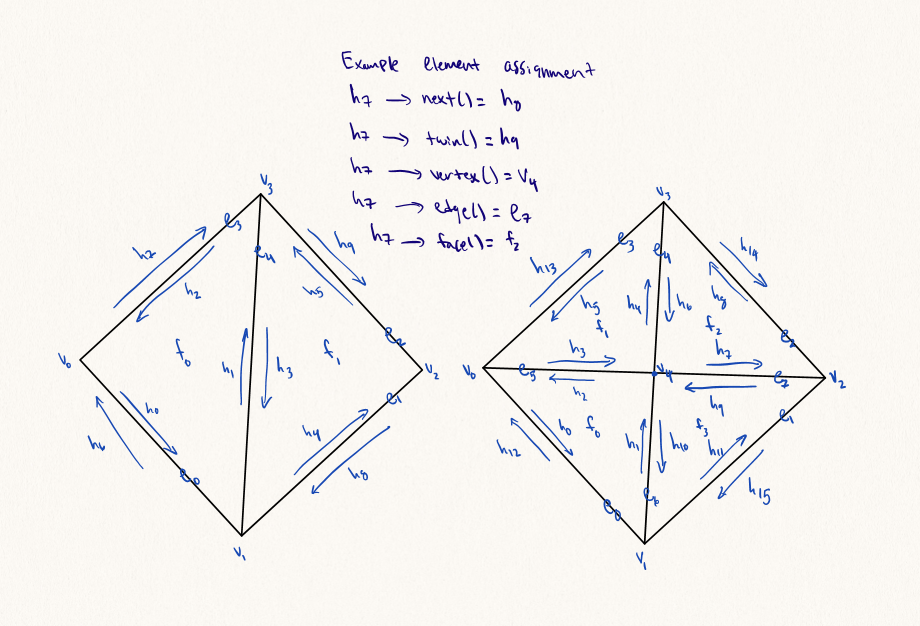 Example element assignment
h7 → next() = h8
h7 → twin() = h9
h7 → vertex() = v4
h7 → edge() = e7
h7 → face() = f2
v3
e3
e4
h7
h9
h2
h5
v0
f0
h1
h3
f1
e2
v2
e1
h0
h6
h4
h8
e0
v1
v3
e3
e4
h14
h13
h5
h4
h6
h8
f1
f2
e2
h3
h7
v0
e5
v4
e7
v2
h2
h9
e1
h0
f0
h12
h1
h10
f3
h11
h15
e6
e0
v1